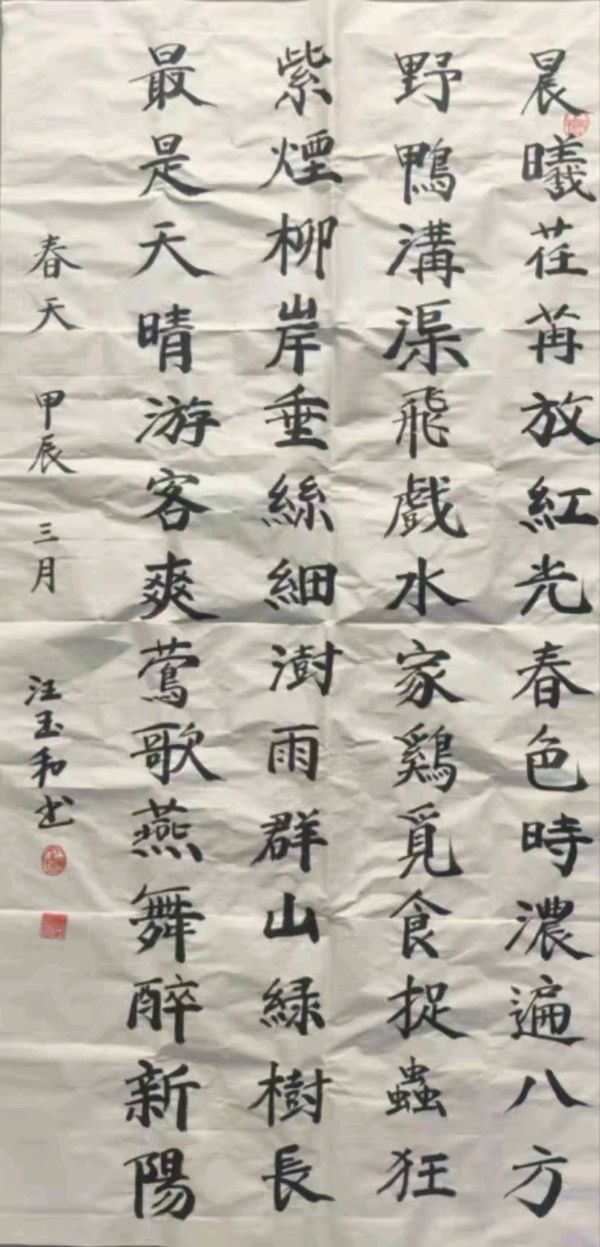 晨曦荏苒放紅光春色時濃遍八方
野鴨溝渠飛戲水家鷄覓食捉蟲狂
紫煙柳岸垂絲細澍雨群山緑樹長
最是天晴游客爽鶯歌燕舞醉新陽
春天 甲辰 三月 汪玉和书